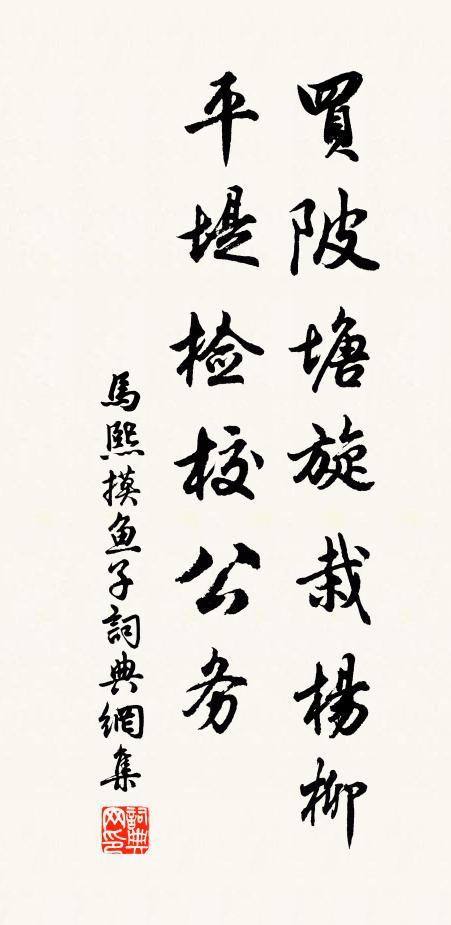 買陂塘旋栽楊柳
平堤检校公务
馬熙摸鱼子詞典網集
詞典网印